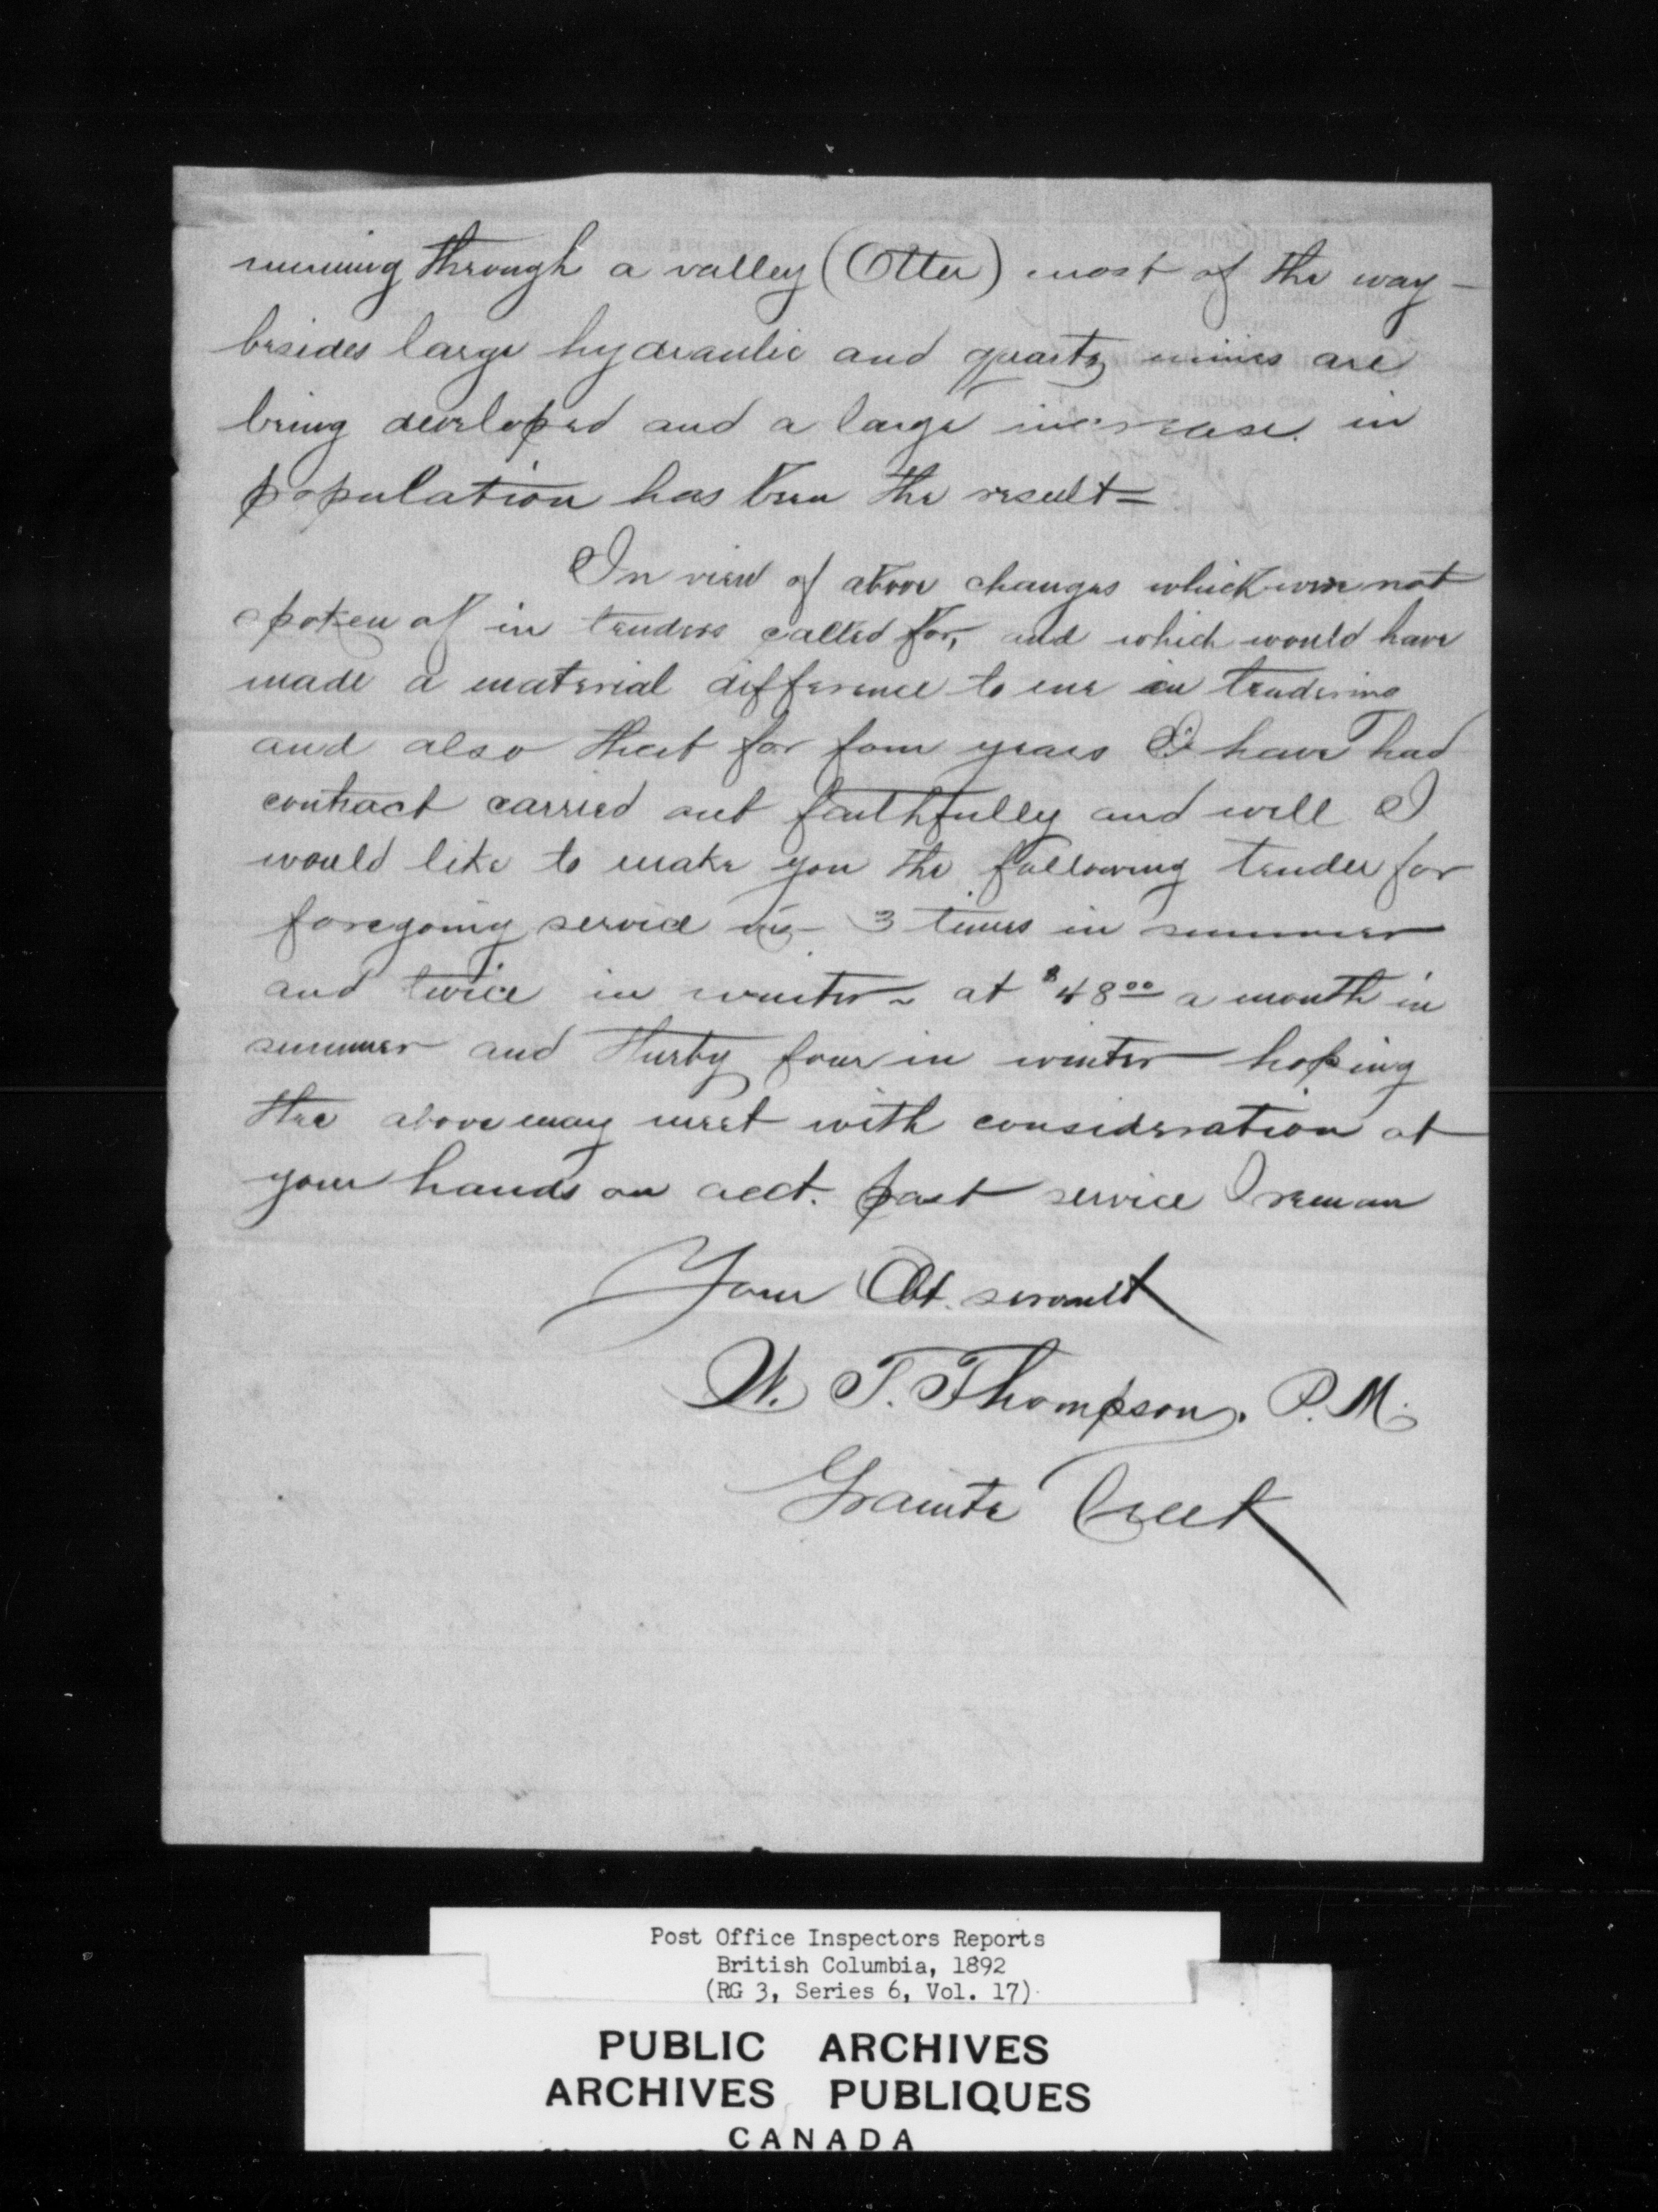 running through a valley (Otter) most of the way -
besides large hydraulic and quartz mines are
being developed and a large increase in
population has been the result =
In view of above changes which were not
spoken of in tenders called for, and which would have
made a material difference to me in tendering
and also that for four years I have had
contract carried out faithfully and well I
would like to make you the following tender for
foregoing service viz - 3 times in summer
and twice in winter - at $48 00 a month in
summer and thirty four in winter - hoping
the above may meet with consideration at
your hands on acct. past service I remain
Your Obt. servant
W. T. Thompson, P.M.
Granite Creek
Post Office Inspectors Reports
British Columbia, 1892
(RG 3, Series 6, Vol. 17)
PUBLIC ARCHIVES
ARCHIVES PUBLIQUES
CANADA